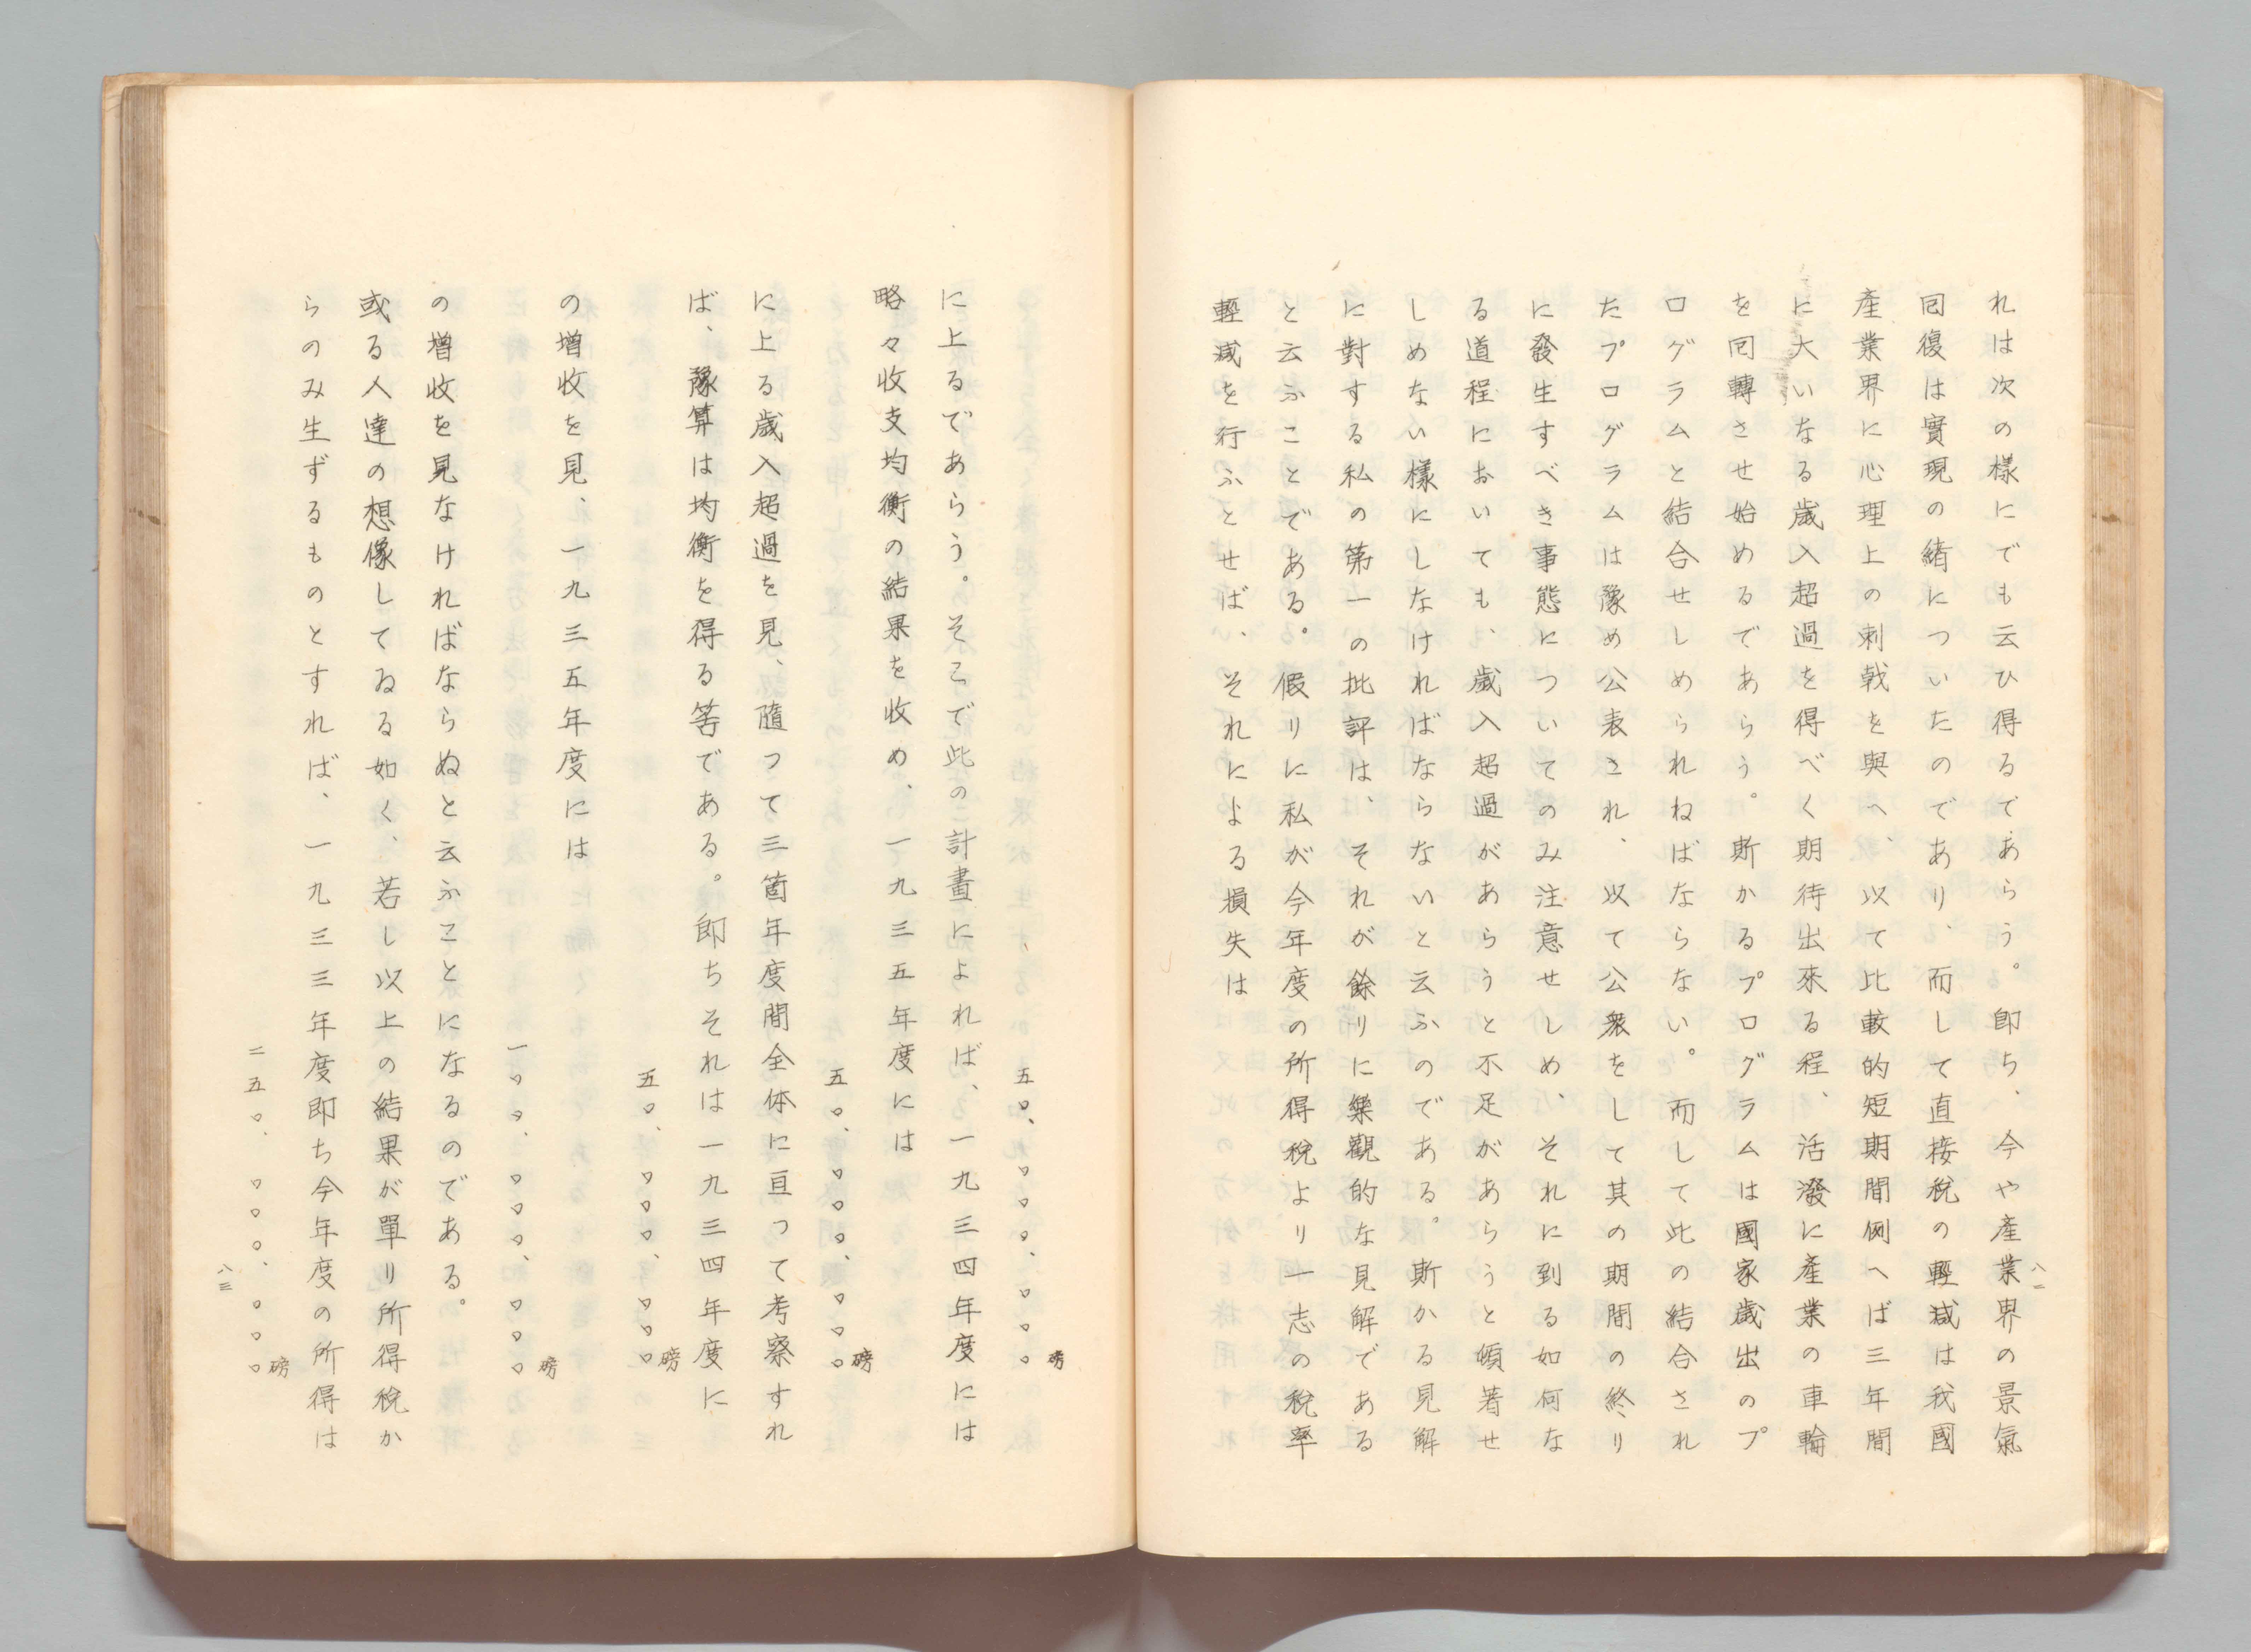 れは次の樣にでも云ひ得るであらう。卽ち、今や產業界の景氣
回復は實現の緖についたのであり、而して直接稅の輕減は我國
產業界に心理上の刺戟を與へ、以て比較的短期間例へば三年間
に大いなる歲入超過を得べく期待出來る程、活潑に產業の車輪
を回轉させ始めるであらう。斯かるプログラムは國家歲出のプ
ログラムと結合せしめられねばならない。而して此の結合され
たプログラムは豫め公表され、以て公衆をして其の期間の終り
に發生すべき事態についてのみ注意せしめ、それに到る如何な
る道程においても、歲入超過があらうと不足があらうと頓着せ
しめない樣にしなければならないと云ふのである。斯かる見解
に對する私の第一の批評は、それが餘りに樂觀的な見解である
と云ふことである。假りに私が今年度の所得稅より一志の稅率
輕減を行ふとせば、それによる損失は
八二
五〇、〇〇〇、〇〇〇磅
に上るであらう。そこで此の計畫によれば、一九三四年度には
略々收支均衡の結果を收め、一九三五年度には
五〇、〇〇〇、〇〇〇磅
に上る歲入超過を見、隨つて三箇年度間全体に亘つて考察すれ
ば、豫算は均衡を得る筈である。卽ちそれは一九三四年度に
五〇、〇〇〇、〇〇〇磅
の增收を見、一九三五年度には
一〇〇、〇〇〇、〇〇〇磅
の增收を見なければならぬと云ふことになるのである。
或る人達の想像してゐる如く、若し以上の結果が單り所得稅か
らのみ生ずるものとすれば、一九三三年度卽ち今年度の所得は
二五〇、〇〇〇、〇〇〇磅
八三